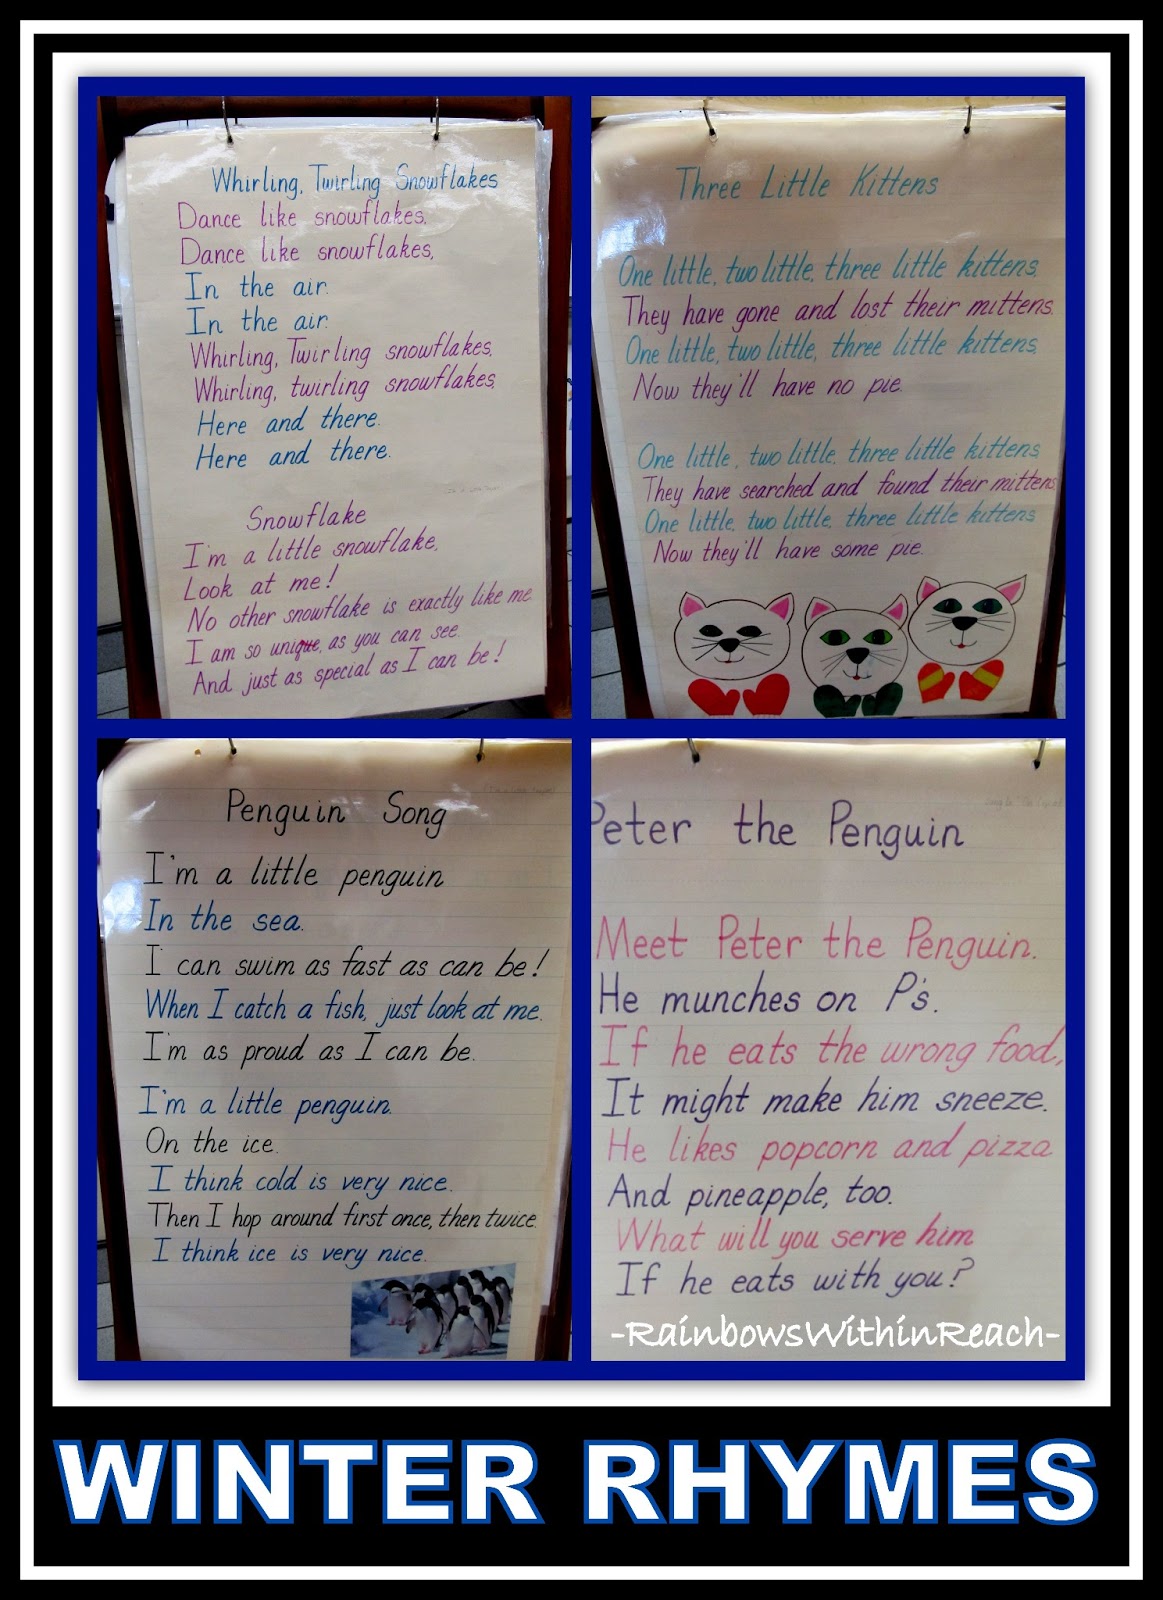 Whirling, Twirling Snowflakes
Dance like snowflakes,
Dance like snowflakes,
In the air.
In the air.
Whirling, Twirling snowflakes,
Whirling, twirling snowflakes,
Here and there.
Here and there.
Snowflake
I'm a little snowflake,
Look at me!
No other snowflake is exactly like me
I am so unique, as you can see.
And just as special as I can be!
Three Little Kittens
One little, two little, three little kittens,
They have gone and lost their mittens.
One little, two little, three little kittens,
Now they'll have no pie.
One little, two little, three little kittens,
They have searched and found their mittens,
One little, two little, three little kittens
Now they'll have some pie.
Penguin Song
I'm a little penguin
In the sea.
I can swim as fast as can be!
When I catch a fish, just look at me.
I'm as proud as I can be.
I'm a little penguin.
On the ice.
I think cold is very nice.
Then I hop around first once, then twice.
I think ice is very nice.
Peter the Penguin
Meet Peter the Penguin.
He munches on P's.
If he eats the wrong food,
It might make him sneeze.
He likes popcorn and pizza
And pineapple, too.
What will you serve him
If he eats with you?
-RainbowsWithinReach-
WINTER RHYMES